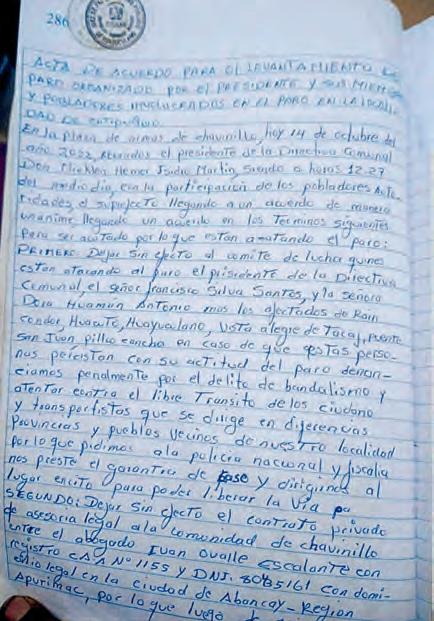 286
ACTA DE ACUERDO PARA EL LEVANTAMIENTO DE
PARO ORGANIZADO POR EL PRESIDENTE Y SUS MIEM
Y POBLADORES INVOLUCRADOS EN EL PARO EN LA LOCALI
DAD DE
En la Plaza de armas de chavinillo, hoy 14 de octubre del
año 2022, reunidos el presidente de la Directiva Comunal
Don Hemer Isidro Martin, siendo a horas 12:27
del medio dia, con la participación de los pobladores Auto
ridades, el subprefecto llegando a un acuerdo de manera
unanime, llegando un acuerdo en los Terminos siguientes
para ser acatado por lo que estan acatando el paro:
PRIMERO: Dejar Sin efecto al comite de lucha quines
estan atacando al paro el prisidente de la Directiva
Comunal, el señor francisco Silva Santos, y la señora
Dora Huamán Antonio mas los afectados de Rain
Condor, Huacuto, Huayualano, Vista alegre de Tacaj, puente
San Juan pillco cancha en caso de que estas perso-
nas percistan con su actitud del paro denun-
ciamos penalmente por el delito de bandalismo y
atentar contra el libre Transito de los ciudano
y transportistas que se dirige en diferencias
Provincias y pueblos vecinos de nuestra localidad
por lo que pidimos a la policia nacional y fiscalia
nos preste el garantia de caso y dirigirnos al
lugar encito para poder liberar la Via pu
SEGUNDO: Dejar Sin efecto el contrato privado
de asesoria legal a la comunidad de chavinillo
entre el abogado Iuan Ovalle Escalante con
registro CAA Nº 1155 y DNI. 8085161 con domi-
cilio legal en la ciudad de Abancay - Region
Apurimac, por lo que luego de